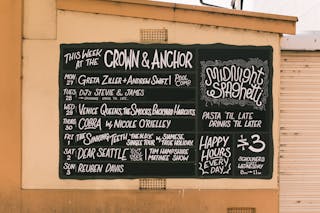 THIS WEEK
AT THE CROWN & ANCHOR
MON
27 GRETA ZILLER + ANDREW SWIFT POOL COMP
TUE
28 DJs STEVIE & JAMES
WED
29 VENICE QUEENS, THE SMOCKS, BACKYARD HAIRCUTS
THURS
30 COBRA W/ NICOLE O'REILLEY
FRI
1 THE SINKING TEETH "THE BLACK SINGLE TOUR" SIAMESE TRUE HOLIDAY
SAT
2 DEAR SEATTLE TIM HAMPSHIRE MATINEE SHOW
SUN
3 REUBEN DAVIS
MIDNIGHT
SPAGHETTI
PASTA TIL LATE
DRINKS TIL LATER
HAPPY
HOURS
EVERY
DAY!
$3
SCHOONERS
WEDNESDAY
8PM–11PM